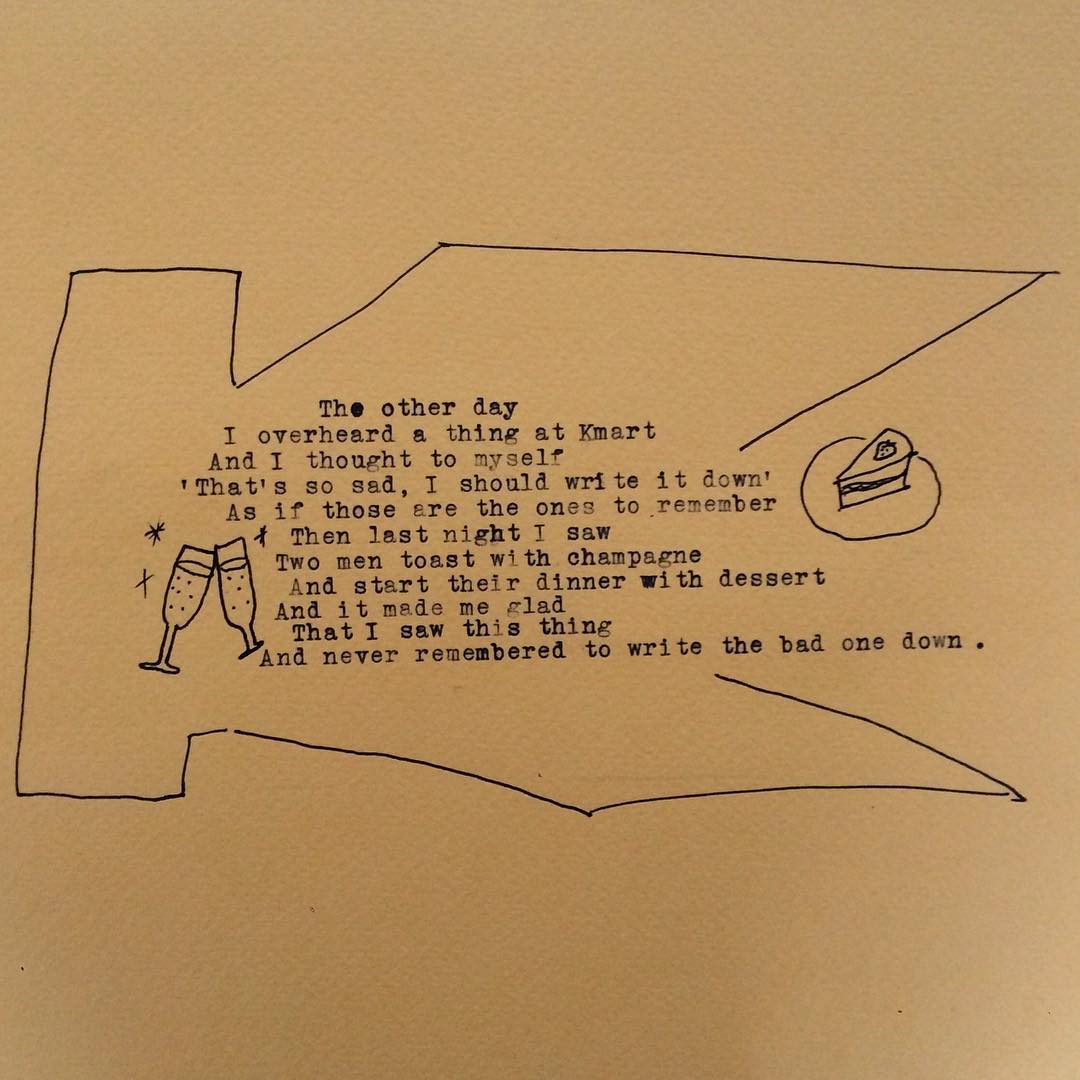 The other day
I overheard a thing at Kmart
And I thought to myself
'That's so sad, I should write it down'
As if those are the ones to remember
Then last night I saw
Two men toast with champagne
And start their dinner with dessert
And it made me glad
That I saw this thing
And never remembered to write the bad one down.